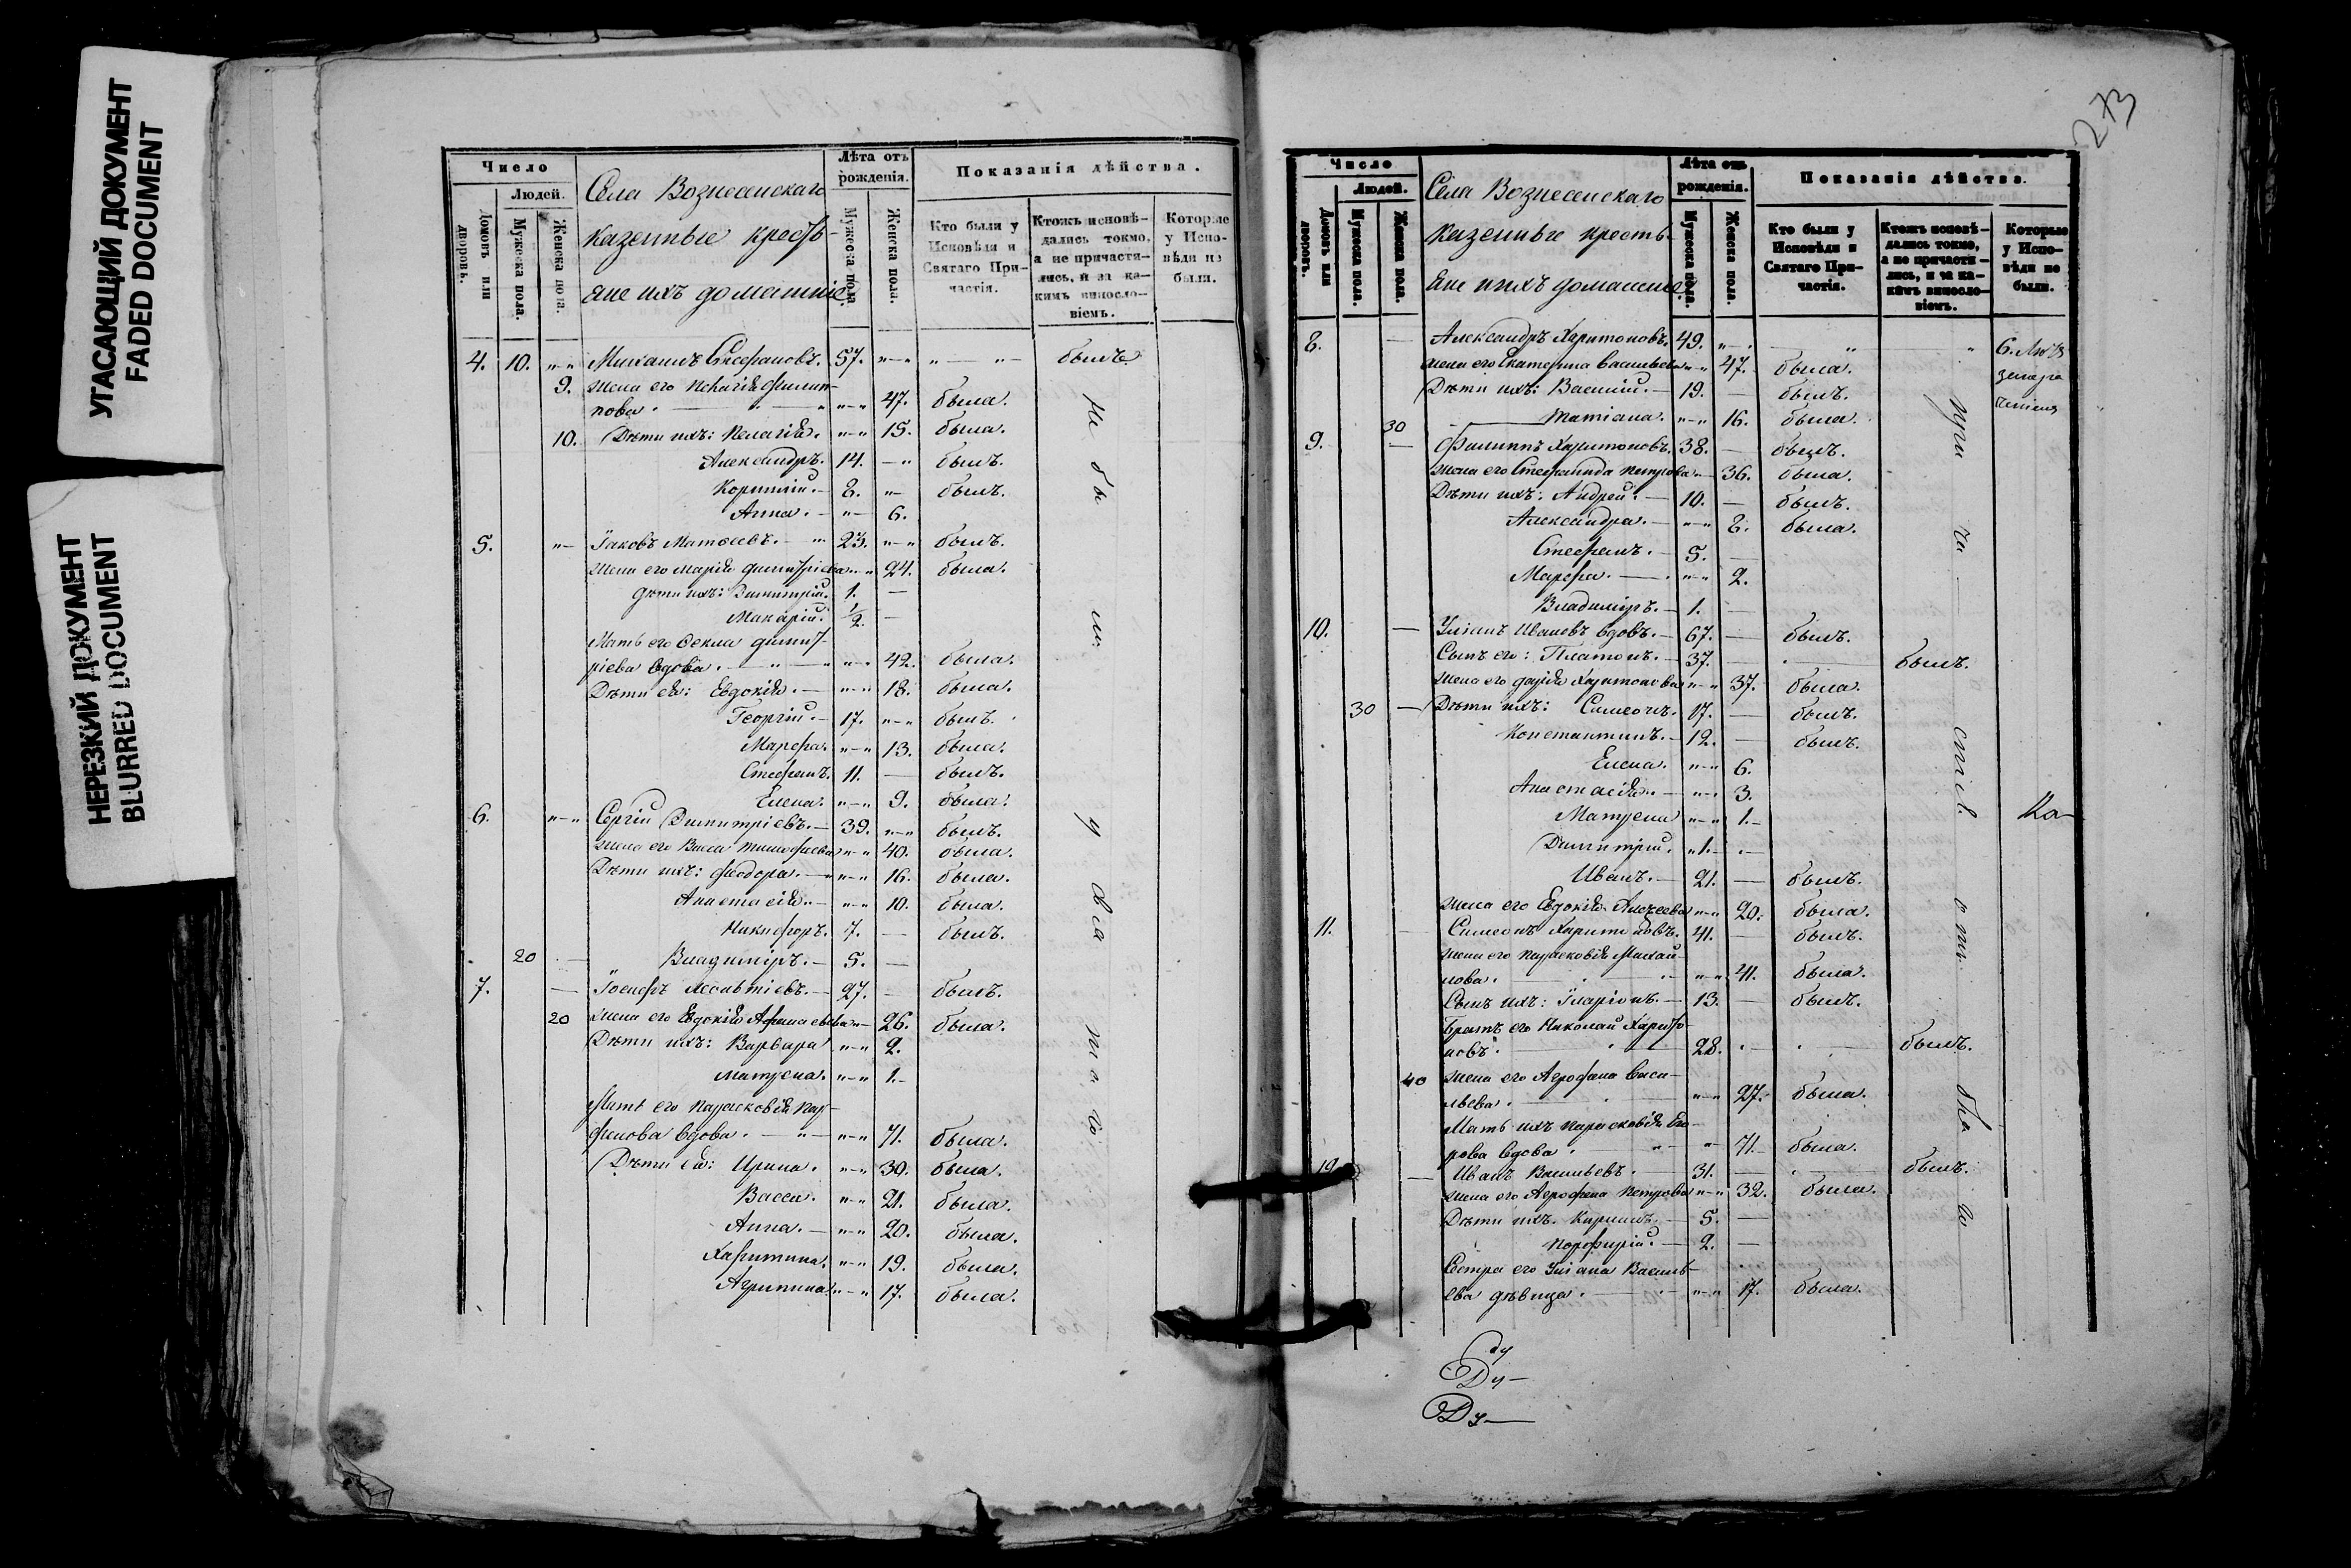 УГАСАЮЩИЙ ДОКУМЕНТ
FADED DOCUMENT
НЕРЕЗКИЙ ДОКУМЕНТ
BLURRED DOCUMENT
Число
Людей.
Домовъ или дворовъ.
Мужеска пола.
Женска пола.
Села Вознесенскаго
казенные кресть-
яне ихъ домашніе
Лѣта отъ рожденія.
Мужеска пола
Женска пола.
Показанія дѣйства.
Кто были у Исповѣди и Святаго Причастія.
Ктожъ исповѣ-
дались токмо,
а не причасти-
лись, и за ка-
кимъ виносло-
віемъ.
Которые
у Испо-
вѣди не
были.
4. 10. Михаилъ Стефановъ. 57. былъ
9. жена его Пелагія Филип-
пова. 47. была.
10. Дѣти ихъ: Пелагія. 15. была.
Александръ. 14. былъ.
8. былъ.
Анна. 6.
5. Іаковъ Матѳеевъ. 23. былъ.
жена его Марія Димитріева 24. была.
дѣти ихъ: Димитрій. 1.
Макарій. 1/2.
Мать его Ѳекла Димит-
ріева вдова. 42. была.
Дѣти ея: Евдокія. 18. была.
Георгій. 17. былъ.
Марфа. 13. была.
Стефанъ. 11. былъ.
Елена. 9. была.
6. Сергій Димитріевъ. 39. былъ.
жена его Васса Тимофеева 40. была.
Дѣти ихъ: Феодора. 16. была.
Анастасія. 10. была.
Никифоръ. 7. былъ.
20 Владиміръ. 5.
7. Іосифъ Леонтіевъ. 27. былъ.
20 жена его Евдокія Афанасьева 26. была.
Дѣти ихъ: Варвара 2.
Матрена. 1.
Мать его Парасковія Пар-
фенова вдова. 71. была.
Дѣти ея: Ирина. 30. была.
Васса. 21. была.
Анна. 20. была.
Харитина. 19. была.
Агрипина 17. была.
273
Число
Людей.
Домовъ или дворовъ.
Мужеска пола.
Женска пола.
Села Вознесенскаго
казенные кресть-
яне ихъ домашніе
Лѣта отъ рожденія.
Мужеска пола.
Женска пола.
Показанія дѣйства.
Кто были у
Исповѣди и
Святаго При-
частія.
Ктожъ исповѣ-
дались токмо,
а не причасти-
лись, и за ка-
кимъ виносло-
віемъ.
Которые
у Испо-
вѣди не
были.
8. Александръ Харитоновъ. 49.
жена его Екатерина Васильева 47. была.
Дѣти ихъ: Василій. 19. былъ.
30 Татіана. 16. была.
9. Филиппъ Харитоновъ. 38. былъ.
жена его Степанида Петрова 36. была.
Дѣти ихъ: Андрей. 10. былъ.
Александра. 8. была.
Стефанъ. 5.
Марфа. 2.
Владиміръ. 1.
10. Уліанъ Ивановъ вдовъ. 67. былъ.
Сынъ его: Платонъ. 37. былъ.
жена его Дарія Харитонова 37. была.
30 Дѣти ихъ: Симеонъ. 17. былъ.
Константинъ. 12. былъ.
Елена. 6.
Анастасія. 3.
Матрена 1.
Димитрій. 1.
Иванъ. 21. былъ.
жена его Евдокія Алѯеева 20. была.
11. Симеонъ Харитоновъ. 41. былъ.
жена его Парасковія Михай-
лова. 41. была.
Сынъ ихъ: Іларіонъ. 13. былъ.
Братъ его Николай Харито-
новъ. 28. былъ.
40 жена его Агрофена Васи-
льева. 27. была.
Мать ихъ Парасковія Его-
рова вдова. 71. была.
12 Иванъ Васильевъ. 31. былъ.
жена его Агрофена Петрова 32. была.
Дѣти ихъ. Кирилъ. 5.
Порфирій. 2.
Сестра его Уліана Василь-
ева дѣвица. 17. была.